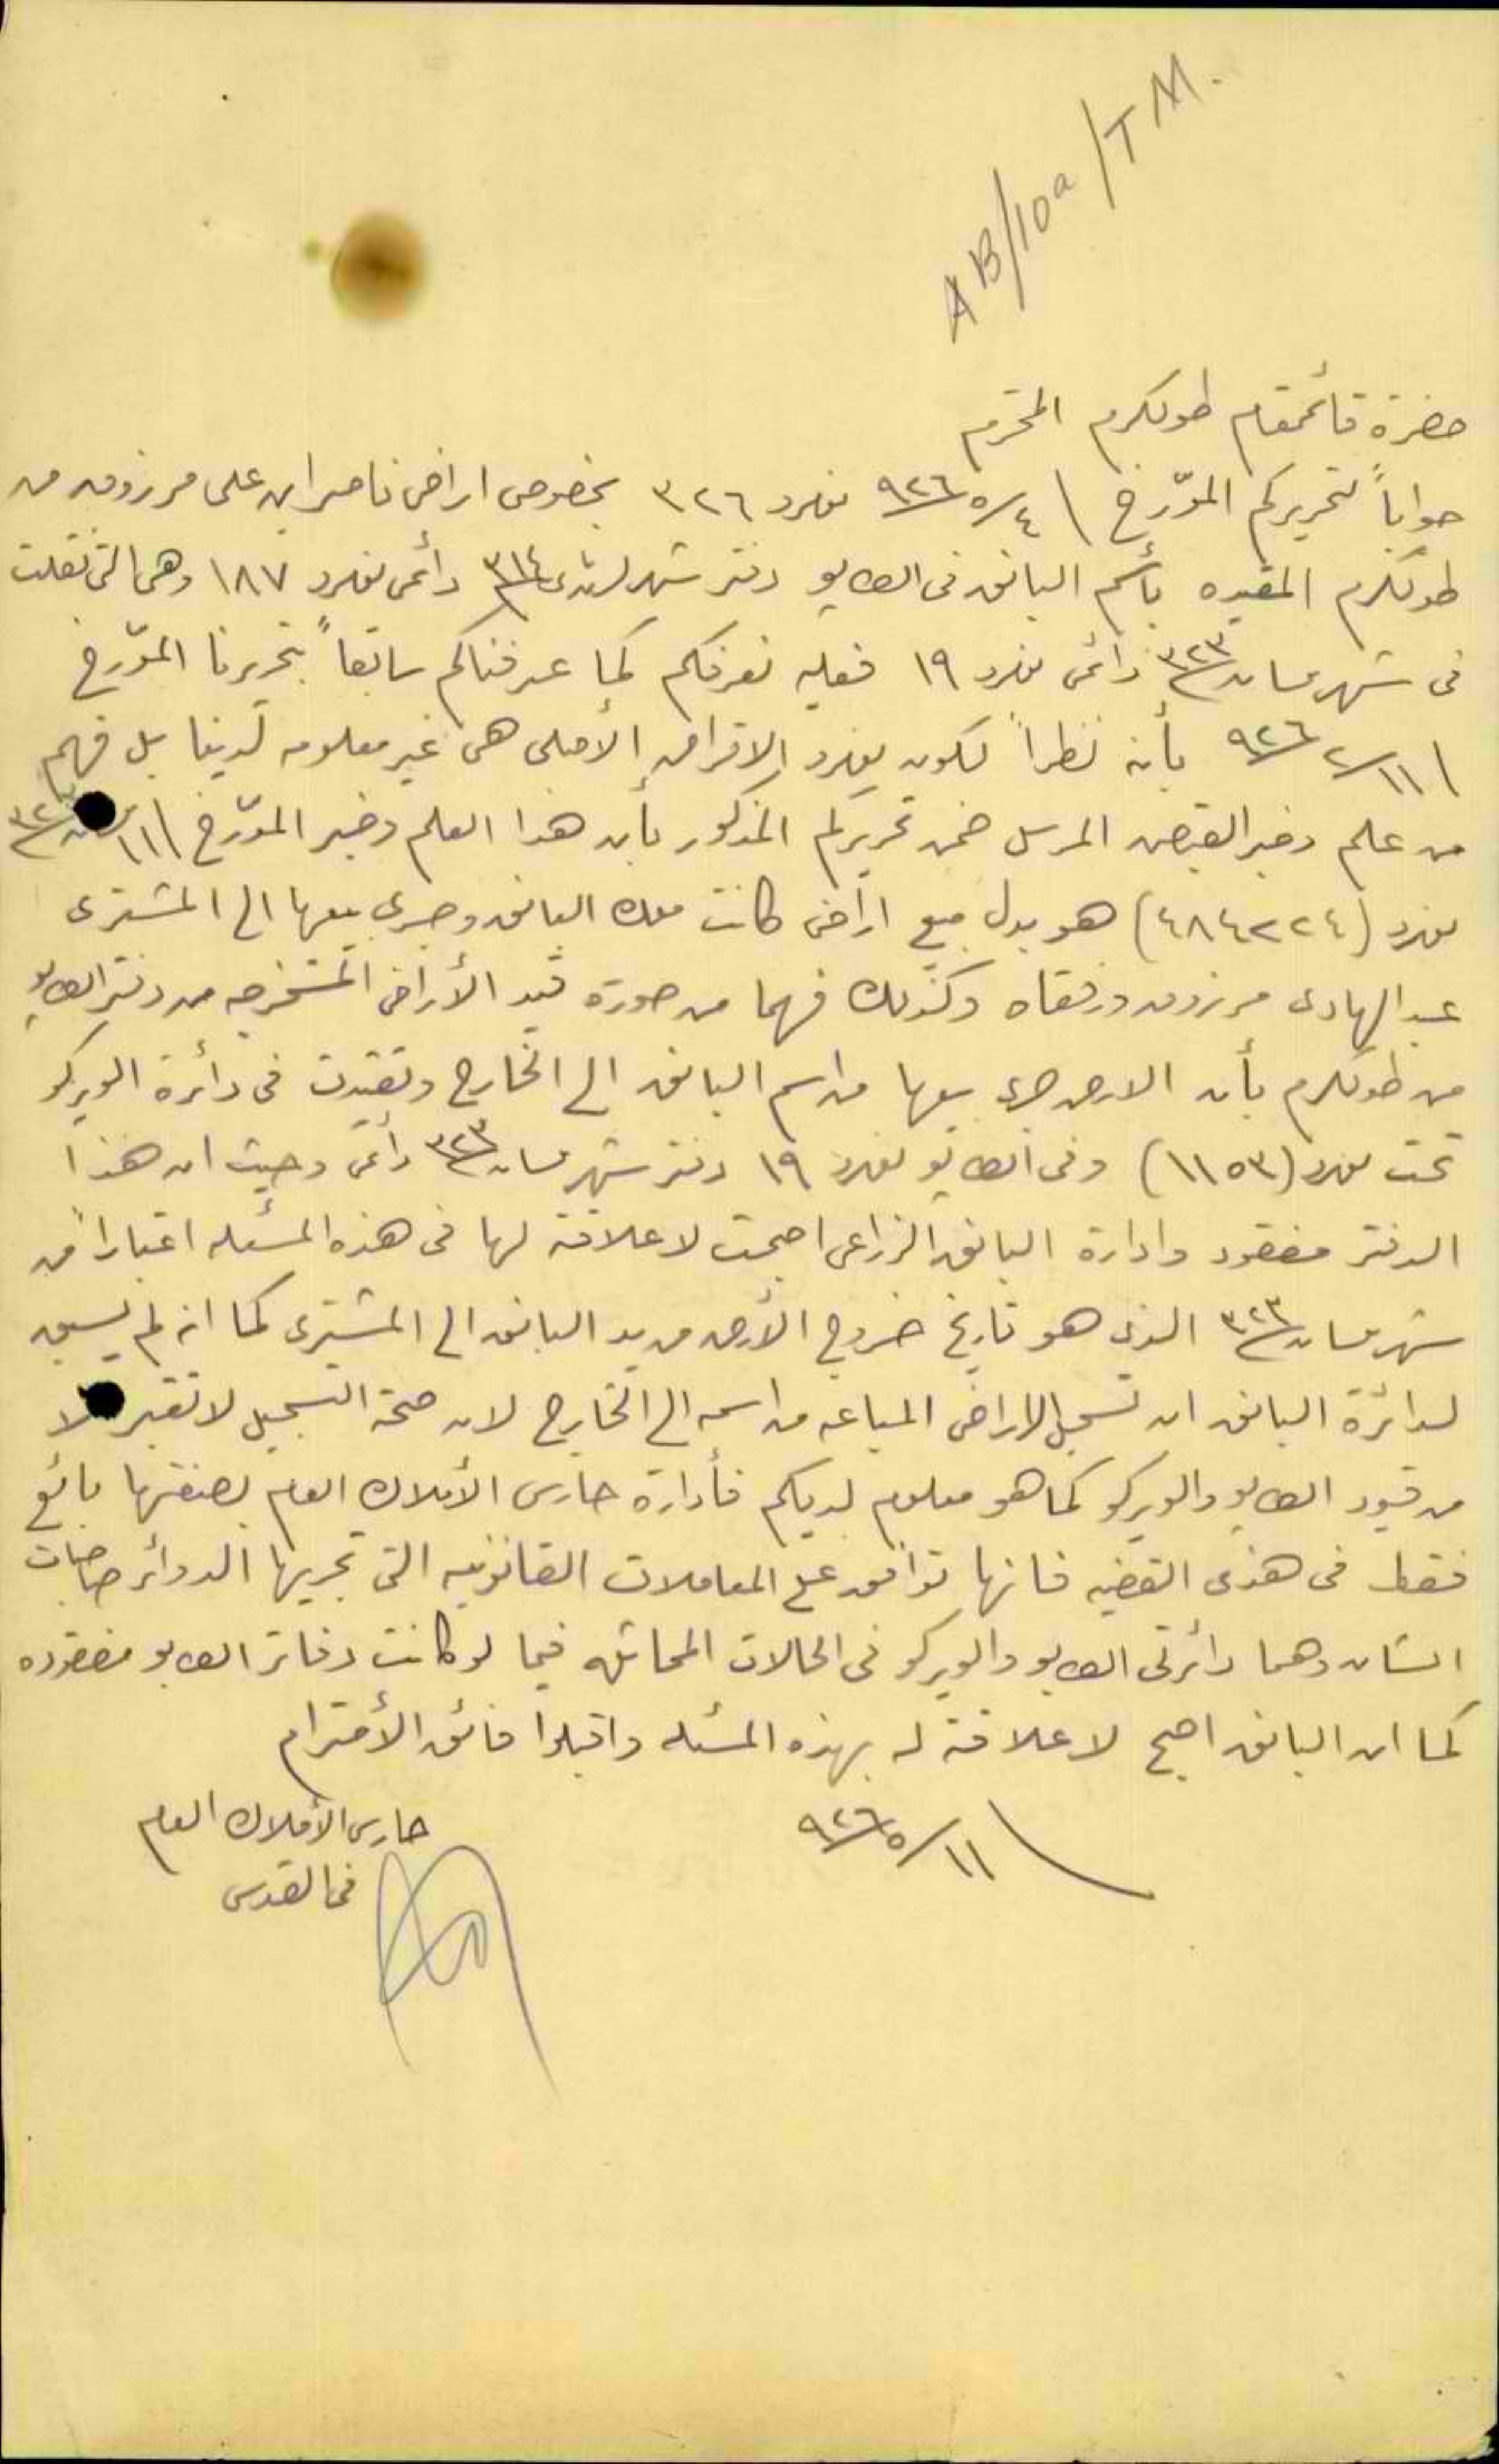 AB/10a/TM.
حضرة قائمقام طولكرم المحترم
جواباً لتحريركم المؤرخ ٤/٥/٩٢٦ نمرو ٣٢٦ بخصوص اراضي ناصر ابن علي مرزوق من
طولكرم المقيده بأسم البانق في الطابو دفتر شهر ٣١٤ دائمي نمرو ١٨٧ وهي التي نقلت
في شهر نيسان ٣٢٣ دائمي نمرو ١٩ فعليه نعرفكم كما عرفناكم سابقاً بتحريرنا المؤرخ
١١/٢/٩٢٦ بأنه نظراً لكون نمرو الاقراض الأصلي هي غير معلومه لدينا بل فهم
من علم وخبر القبض المرسل ضمن تحريركم المذكور بأن هذا العلم وخبر المؤرخ ١١
نمرو (٤٨٤٢٢٤) هو بدل مبيع اراضي كانت ملك البانق وجرى بيعها الى المشترى
عبد الهادى مرزوق ورفقاه وكذلك فهما من صورة قيد الأراضي المستخرجه من دفتر الطابو
من طولكرم بأن الارض جرى بيعها من اسم البانق الى الخارج وتقيدت في دائرة الويركو
تحت نمرو (١١٥٣) وفي الطابو نمرو ١٩ دفتر شهر نيسان ٣٢٣ دائمي وحيث ان هذا
الدفتر مفقود وادارة البانق الزراعي اصبحت لا علاقة لها في هذه المسئله اعتباراً من
شهر نيسان ٣٢٣ الذى هو تاريخ خروج الأرض من يد البانق الى المشترى كما انه لم يسبق
لدائرة البانق ان تسجل الاراضي المباعه من اسمه الى الخارج لان صحة التسجيل لا تعتبر الا
من قيود الطابو والويركو كما هو معلوم لديكم فأدارة حارس الأملاك العام بصفتها بائع
فقط في هذى القضيه فانها توافق على المعاملات القانونيه التي تجريها الدوائر صاحبات
الشان وهما دائرتي الطابو والويركو في الحالات المماثله فيما لو كانت دفاتر الطابو مفقوده
كما ان البانق اصبح لا علاقة له بهذه المسئله واقبلوا فائق الأحترام
١١/٥/٩٢٦
حارس الأملاك العام
في القدس